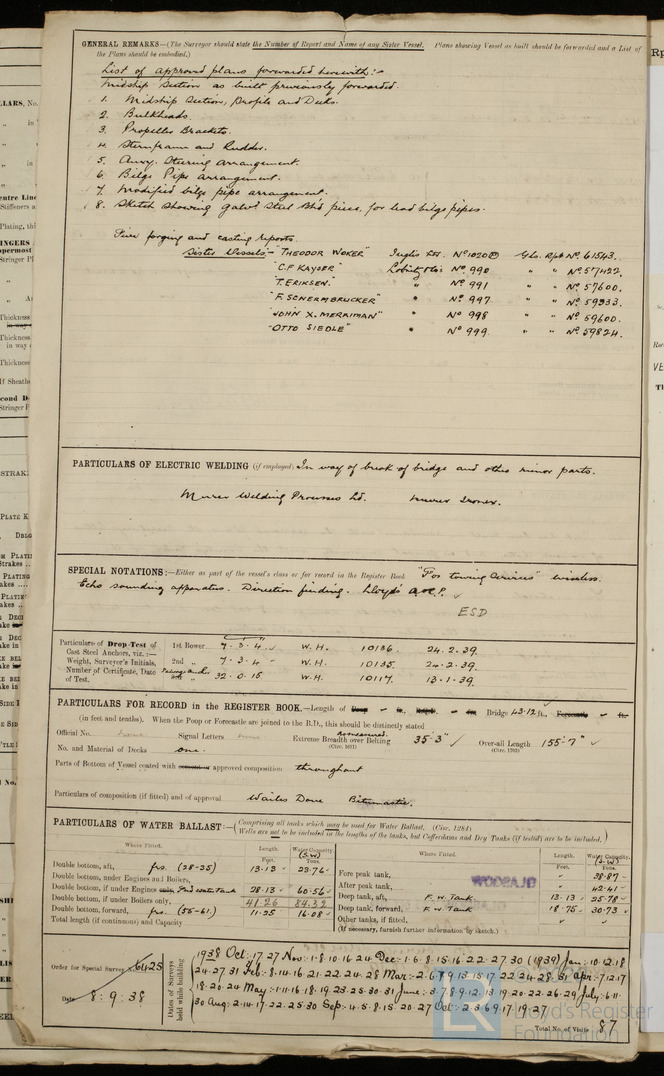 GENERAL REMARKS—(The Surveyor should state the Number of Report and Name of any Sister Vessel. Plans showing Vessel as built should be forwarded and a List of
the Plans should be embodied.)
List of approved plans forwarded herewith:-
Midship Section as built previously forwarded.
1. Midship Section, Profile and Decks.
2. Bulkheads.
3. Propeller Brackets.
4. Sternframe and Rudder.
5. Auxy. Steering arrangement.
6. Bilge Pipe arrangement.
7. Modified bilge pipe arrangement.
8. Sketch showing galvd Steel Bhd pieces, for lead bilge pipes.
forging and casting reports.
Sister Vessels:- "THEODOR WOKER" Inglis Ltd. No 1020 Gls. Rpt No. 61543.
"C.F. KAYSER" Lobnitz & Co: No 990 " " No 57422.
T. ERIKSEN. " No 991 " " No 57600.
"F. SCHERMBRUCKER" " No 997 " " No 59333.
"JOHN X. MERRIMAN" " No 998 " " No 59600.
"OTTO SIEDLE" " No 999. " " No 59824.
PARTICULARS OF ELECTRIC WELDING (if employed) In way of break of bridge and other minor parts.
Murex Welding Processes Ltd. Murex Ironex.
SPECIAL NOTATIONS:—Either as part of the vessel's class or for record in the Register Book "For towing Services" wireless.
Echo sounding apparatus. Direction finding. Lloyd's A & C.P.
ESD
Particulars of Drop-Test of
Cast Steel Anchors, viz.:—
Weight, Surveyor's Initials,
Number of Certificate, Date
of Test.
1st Bower 7.3.4 W.H. 10136. 24.2.39.
2nd " 7.3.4 W.H. 10135. 24.2.39.
32.0.15 W.H. 10117. 13.1.39.
PARTICULARS FOR RECORD in the REGISTER BOOK.—Length of Poop ft., Bridge 43.12 ft., Forecastle ft.
(in feet and tenths). When the Poop or Forecastle are joined to the B.D., this should be distinctly stated
Official No. Signal Letters Extreme Breadth over Belting 35'-3" Over-all Length 155'-7"
(Circ. 1611) (Circ. 1703)
No. and Material of Decks one.
Parts of Bottom of Vessel coated with cement or approved composition throughout
Particulars of composition (if fitted) and of approval Wailes Dove Bitumastic.
PARTICULARS OF WATER BALLAST:—(Comprising all tanks which may be used for Water Ballast. (Circ. 1284)
Wells are not to be included in the lengths of the tanks, but Cofferdams and Dry Tanks (if tested) are to be included.)
Where Fitted. Length. Water Capacity. Where Fitted. Length. Water Capacity.
Feet. (S.W) Tons. Feet. (S.W) Tons.
Double bottom, aft, frs. (28-35) 13.13 23.76
Double bottom, under Engines and Boilers,
Double bottom, if under Engines only, Fwd water Tank 28.13 60.56
Double bottom, if under Boilers only, 41.26 84.32
Double bottom, forward, frs. (55-61) 11.25 16.08
Total length (continuous) and Capacity
Fore peak tank, " 38.87
After peak tank, " 42.41
Deep tank, aft, F.W. Tank. 13.13 25.78
Deep tank, forward, F.W. Tank 18.75 30.73
Other tanks, if fitted,
(If necessary, furnish further information by sketch.)
GLASGOW
Order for Special Survey No. 6425
Date 8.9.38
Dates of Surveys
held while building
1938 Oct: 17.27 Nov: 1.8.10.16.24 Dec: 1.6.8.15.16.22.27.30 (1939) Jan: 10.12.18
24.27.31 Feb: 8.14.16.21.22.24.28 Mar: 2.6.7.9.13.15.17.22.24.28.31 Apr: 7.12.17
18.20.24 May: 1.11.16.18.19.23.25.30.31 June: 3.7.8.9.12.13.19.20.22.26.29 July: 6.11
30 Aug: 2.14.17.22.25.30 Sep: 4.5.8.15.20.27 Oct: 2.3.6.9.17.19.27
Total No. of Visits 87
Lloyd's Register
Foundation